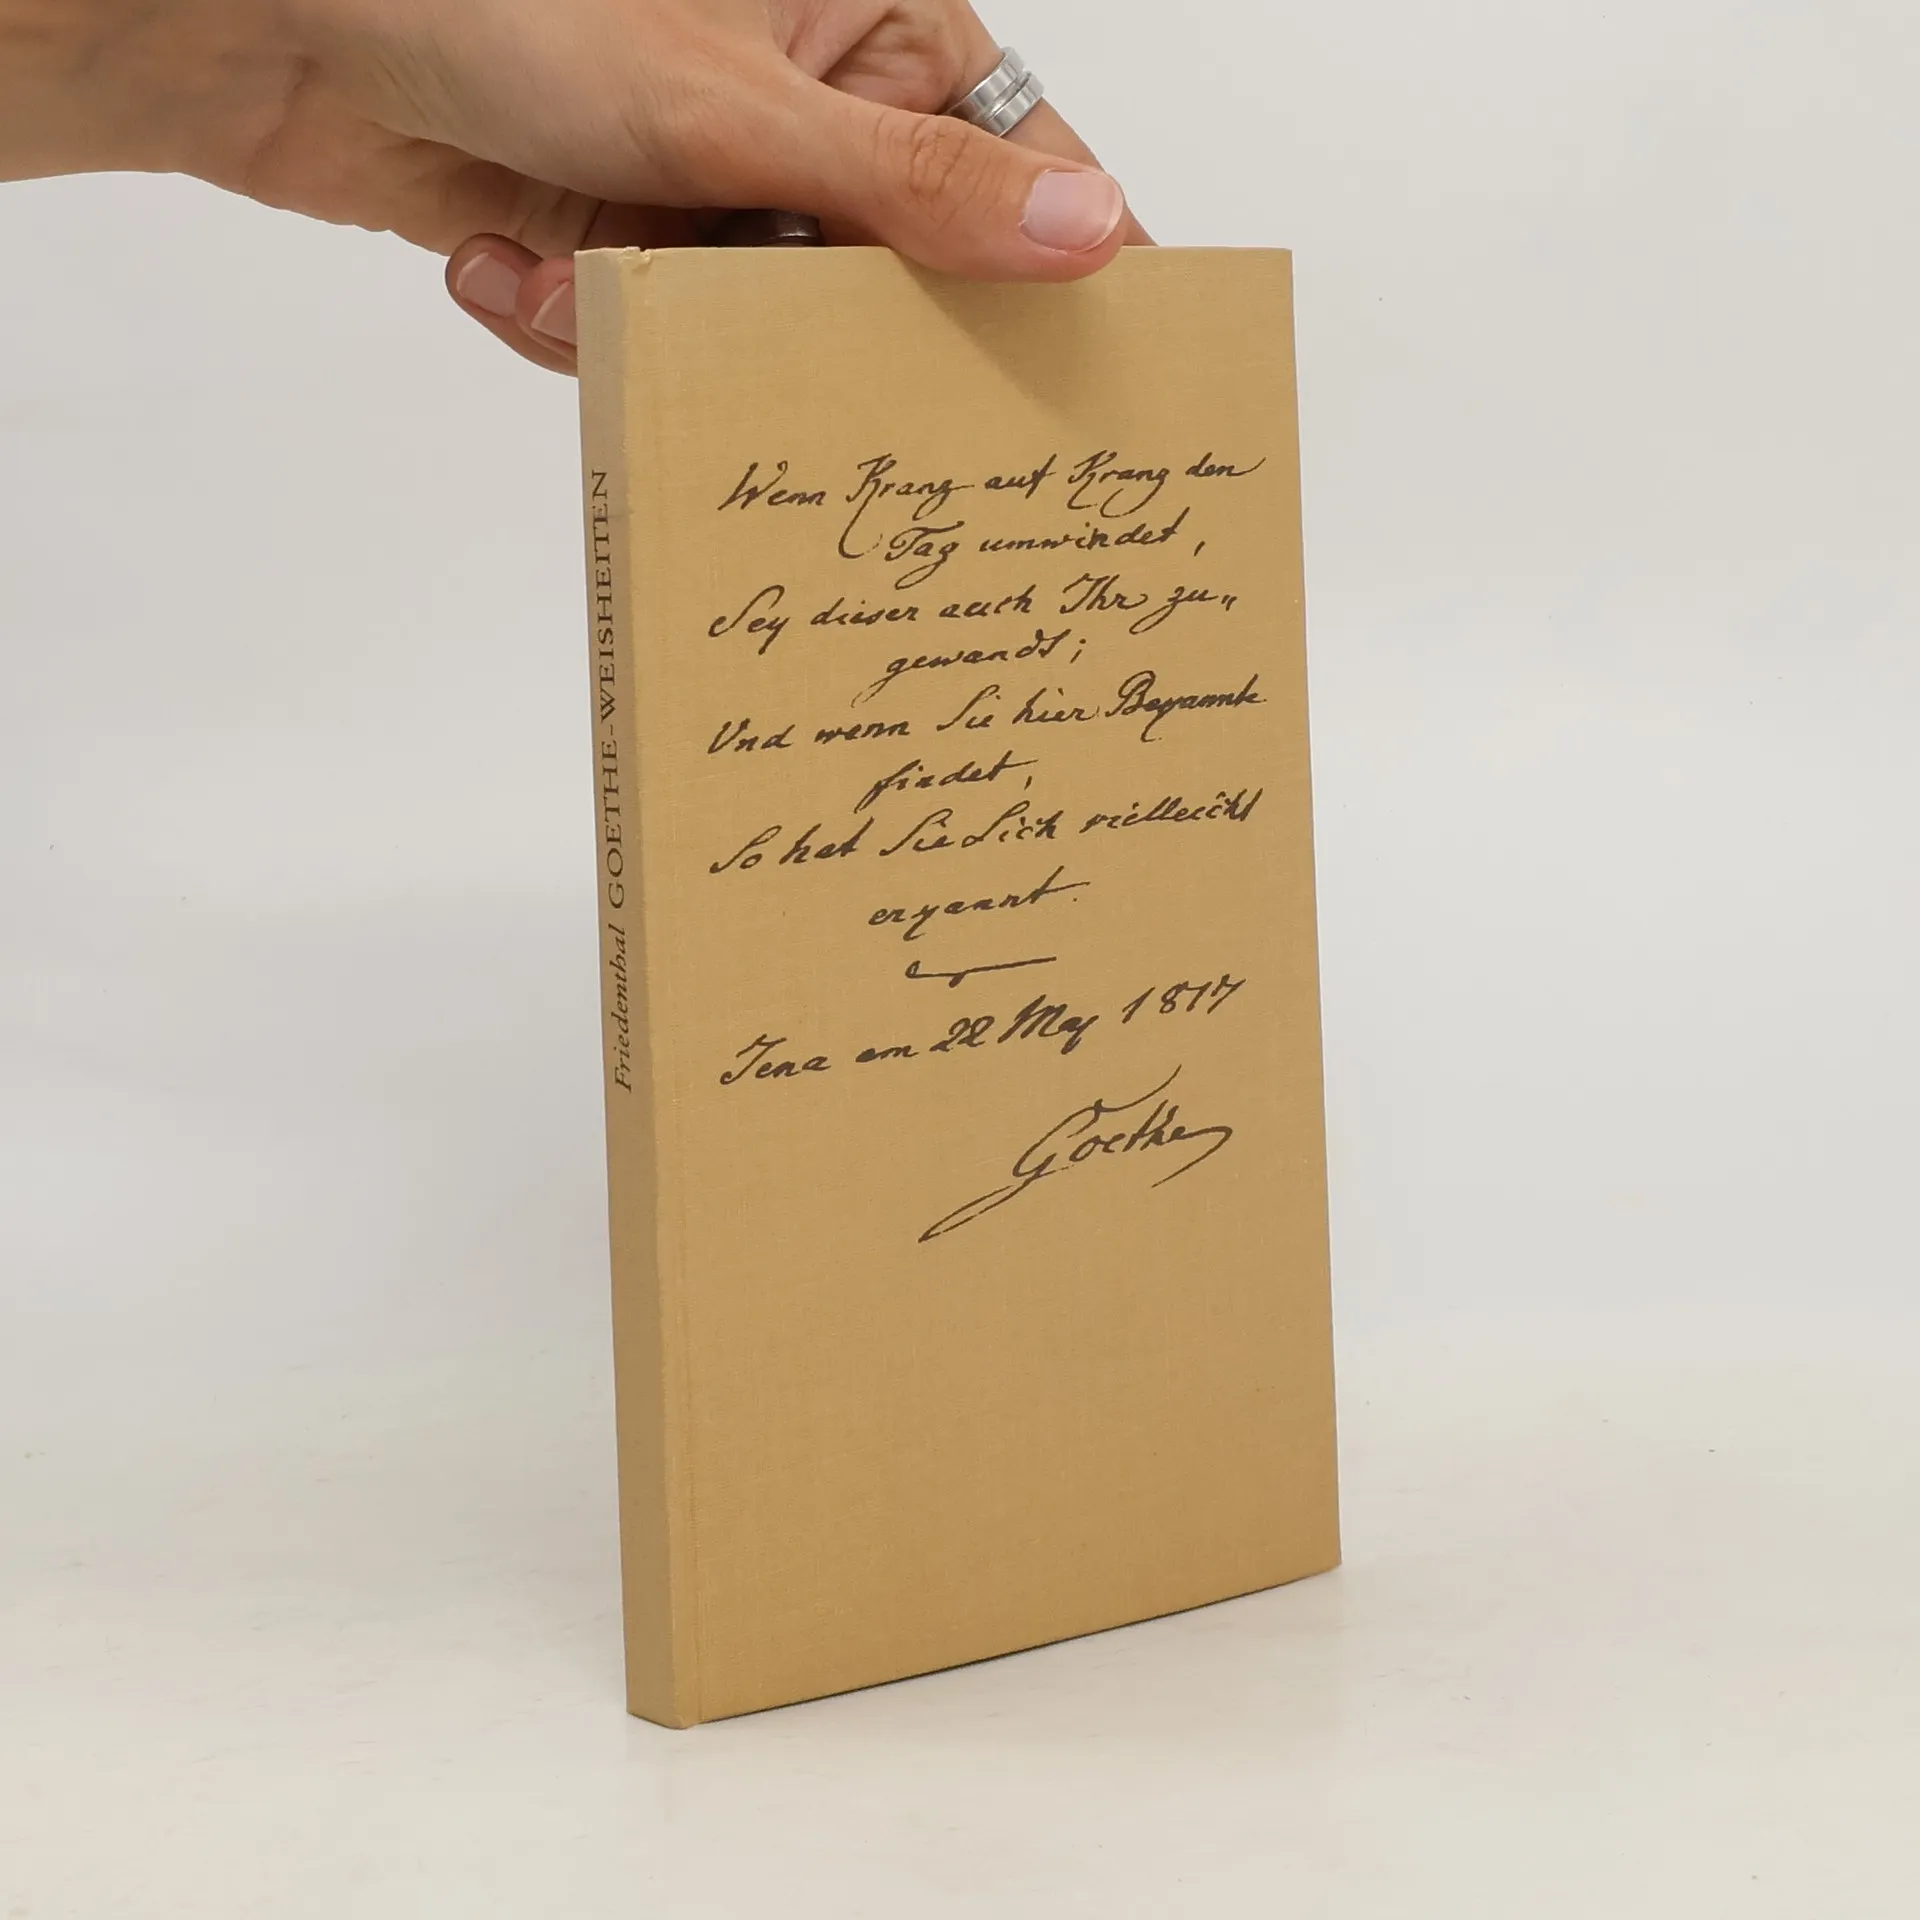 Friedenthal GOETHE-WEISHEITEN
Wenn Kranz auf Kranz den
Tag umwindet,
Sey dieser auch Ihr zu„
gewandt;
Und wenn Sie hier Beyannte
findet,
So hat Sie Sich vielleicht
eryannt.
Jena am 22 May 1817
Goethe